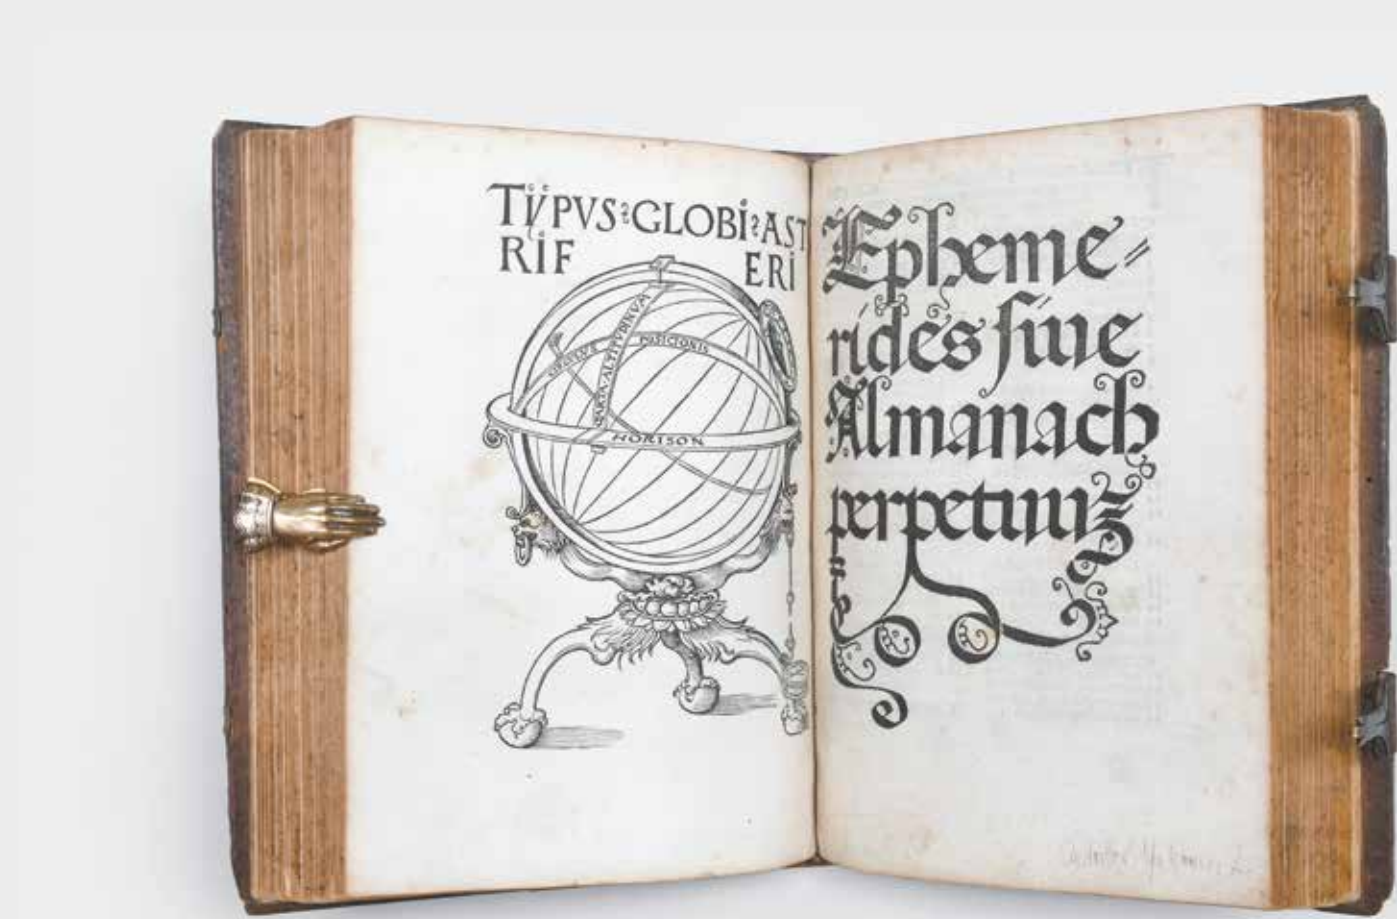 TijPVS GLOBi AST
RiF ERi
CIRCVLVS POSICIONIS
QVARTA ALTITVDINVM
HORISON
Epheme-
rides siue
Almanach
perpetuuȝ